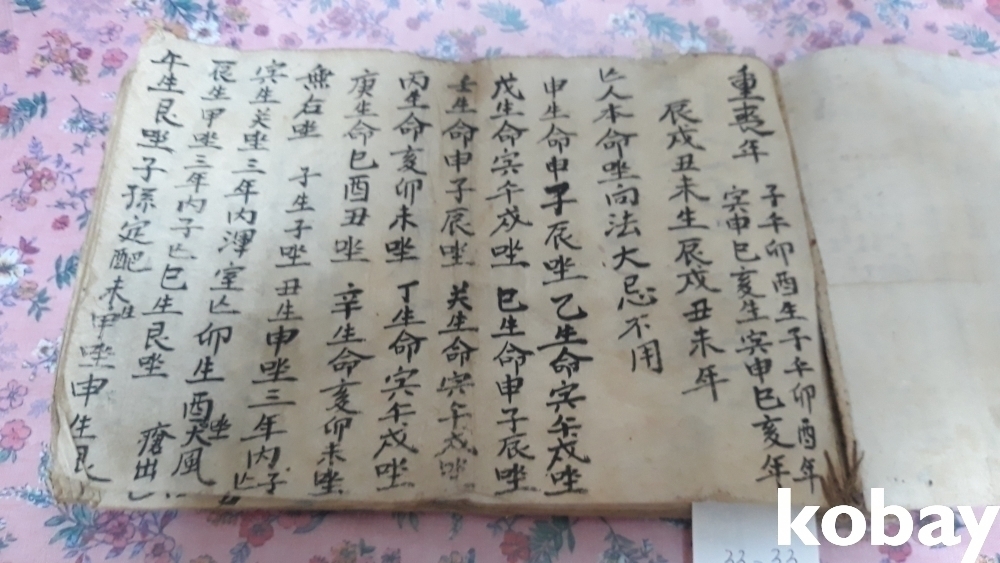 重喪年 子午卯酉生子午卯酉年
寅申巳亥生寅申巳亥年
辰戌丑未生辰戌丑未年
亡人本命坐向法大忌不用
申生命申子辰坐 乙生命寅午戌坐
戊生命寅午戌坐 巳生命申子辰坐
壬生命申子辰坐 癸生命寅午戌坐
丙生命亥卯未坐 丁生命寅午戌坐
庚生命巳酉丑坐 辛生命亥卯未坐
無右坐 子生子坐丑生申坐三年內子亡
寅生癸坐三年內渾室亡卯生酉坐
辰生甲坐三年內子亡巳生艮坐 大風
午生艮坐子孫定配未生甲坐申生艮
瘡出
kobay
33-33